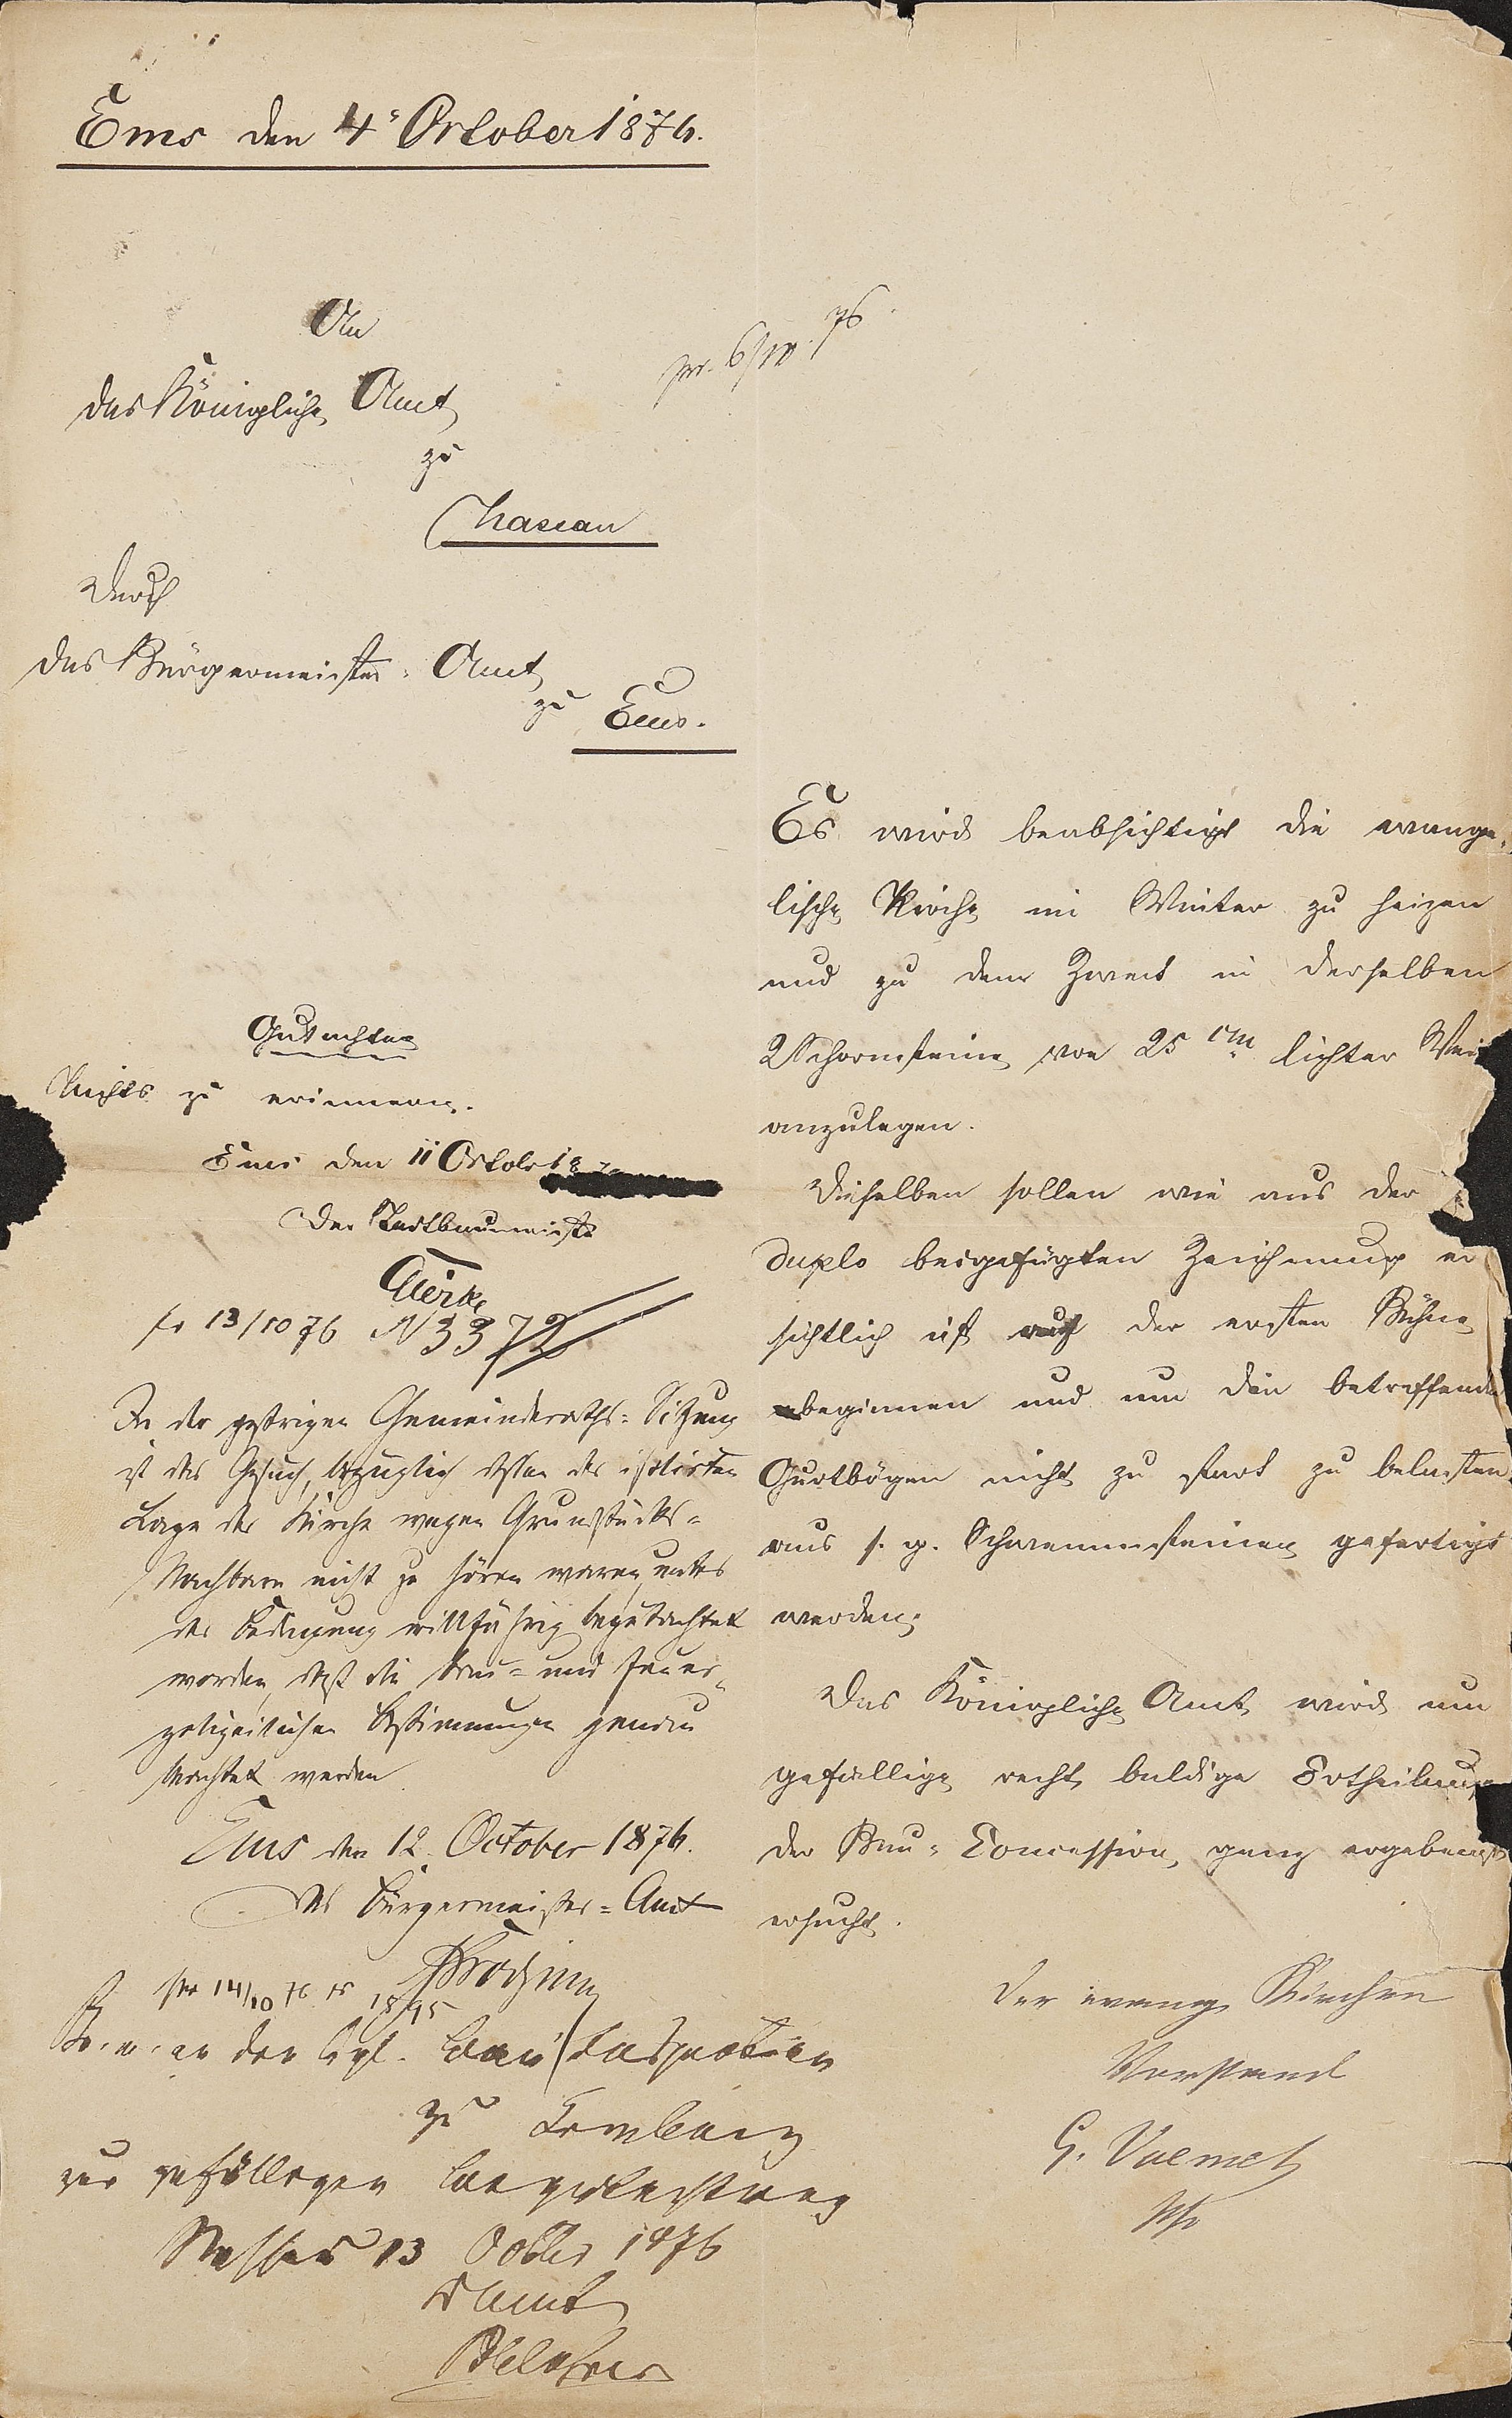 Ems den 4t October 1876.
An
das Königliche Amt
zu
Nassau
pr. 6/10. 76
Durch
das Bürgermeister-Amt
zu Ems.
Es wird beabsichtigt die evange-
lische Kirche im Winter zu heizen
und zu dem Zweck in derselben
2 Schornsteine von 25 cm lichter
anzulegen.
Dieselben sollen wie aus der
duplo beigefügten Zeichnung er
sichtlich ist auf der ersten Bühne
beginnen und um die betreffenden
Gurtbögen nicht zu stark zu belasten
aus s. g. Schwemmsteinen gefertigt
werden.
Das Königliche Amt wird um
gefällige recht baldige Ertheilung
der Bau-Concession, ganz ergebenst
ersucht.
Der evang. Kirchen
Vorstand
Gutachten
Nichts zu erinnern.
Ems den 11 October 18
Der Stadtbaumeister
pr 13/10 76 N 3372
In der gestrigen Gemeinderaths-Sitzung
ist das Gesuch, bezüglich dessen der isolirten
Lage der Kirche wegen Grundstücks-
Nachbarn nicht zu hören waren, unter
der Bedingung willfährig begutachtet
worden, daß die bau- und feuer-
polizeilichen Bestimmungen genau
beachtet werden.
Ems den 12. October 1876.
Das Bürgermeister-Amt
pr 14/10 76
an den Kgl. Bau Inspector
zu Limburg
zur gefälligen Begutachtung
Nassau 13 October 1876
K Amt